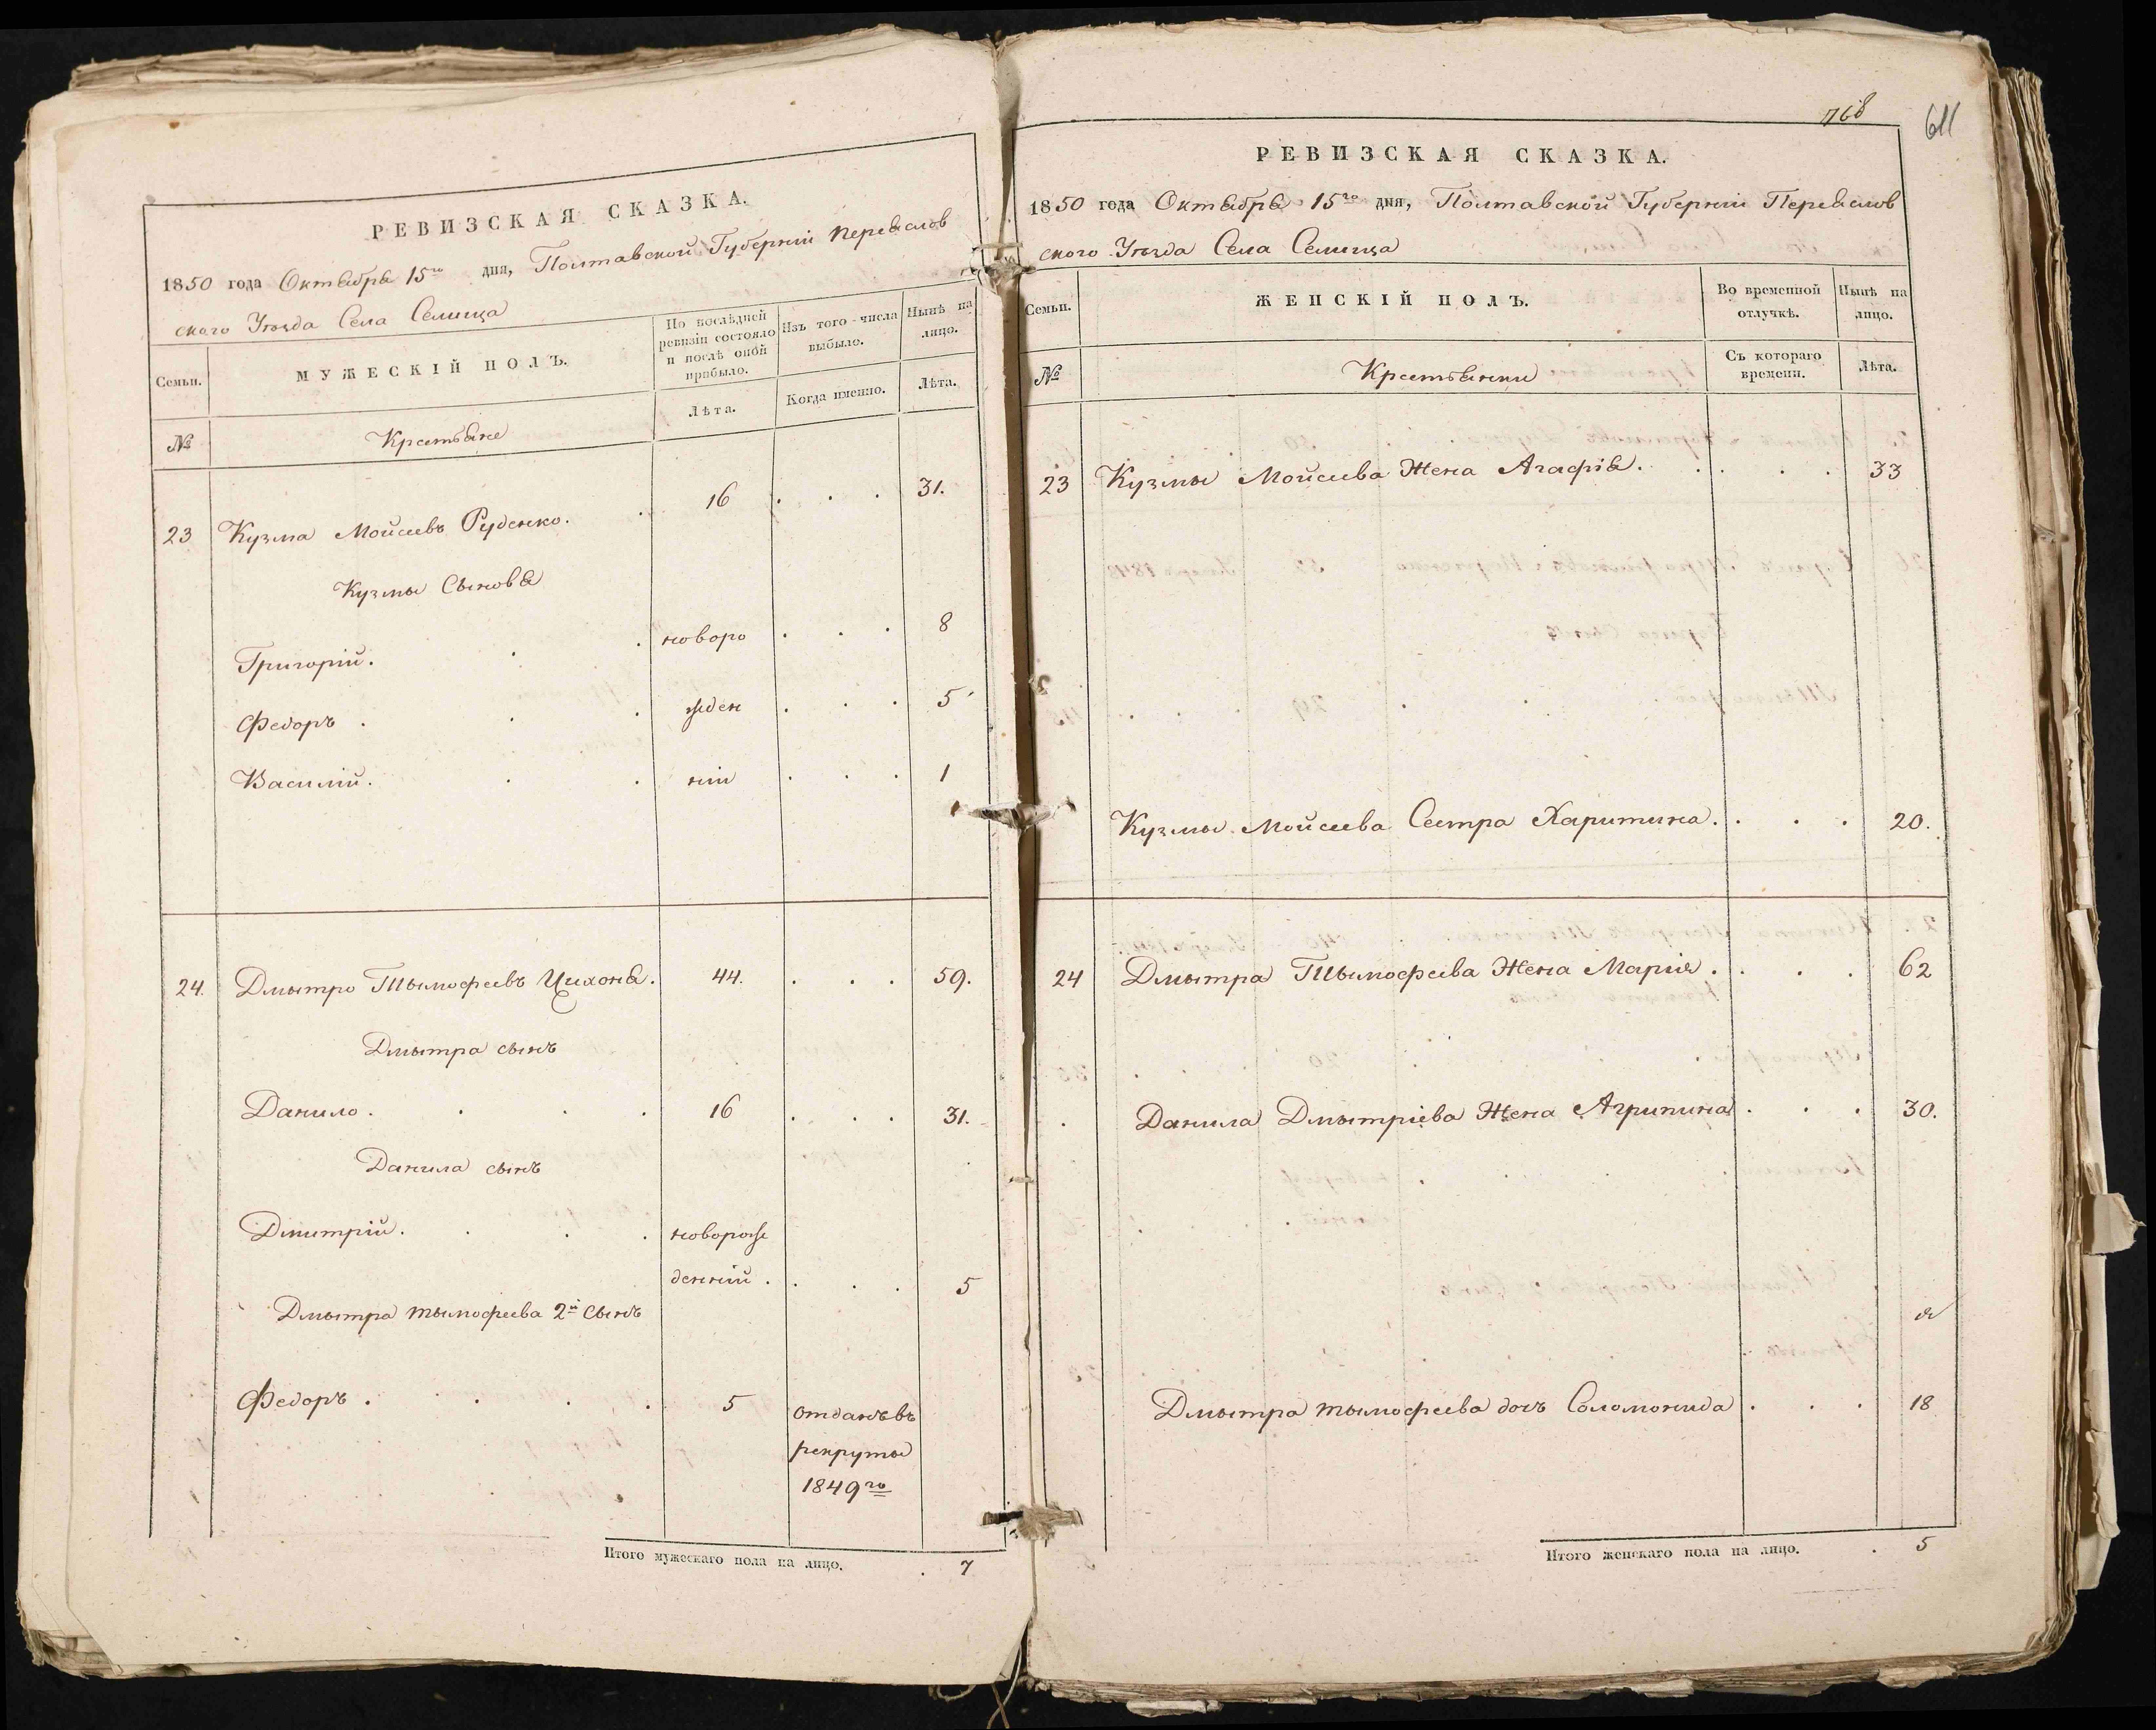 РЕВИЗСКАЯ СКАЗКА.
1850 года Октября 15го дня, Полтавской Губерніи Переяслов
ского Уезда Села Селища
Семьи. МУЖЕСКІЙ ПОЛЪ. По послѣдней ревизіи состояло и послѣ оной прибыло. Изъ того числа выбыло. Нынѣ на лицо.
№ Крестьяне Лѣта. Когда именно. Лѣта.
23 Кузма Мойсеевъ Руденко. 16 . . . 31.
Кузмы Сыновья
Григорій. . . новоро . . . 8
Федоръ . . . жден . . . 5
Василій. . . ніи . . . 1
24. Дмытро Тымофеевъ . 44. . . . 59.
Дмытра сынъ
Данило . . . . 16 . . . 31.
Данила сынъ
Дмитрій. . . . новорож
денній . . . . 5
Дмытра тымофеева 2й сынъ
Федоръ . . . . 5 отданъ въ
рекруты
1849го
Итого мужескаго пола на лицо. . 7
768
611
РЕВИЗСКАЯ СКАЗКА.
1850 года Октября 15го дня, Полтавской Губерніи Переяслов
ского Уезда Села Селища
Семьи. ЖЕНСКІЙ ПОЛЪ. Во временной отлучкѣ. Нынѣ на лицо.
№ Крестьянки Съ котораго времени. Лѣта.
23 Кузмы Мойсеева Жена Агафія. . . . . 33
Кузмы Мойсеева Сестра Харитина. . . . 20.
24 Дмытра Тымофеева Жена Марія . . . . 62
Данила Дмытріева Жена Агрипина . . . 30.
Дмытра тымофеева дочь Соломонида . . . 18
Итого женскаго пола на лицо. . 5